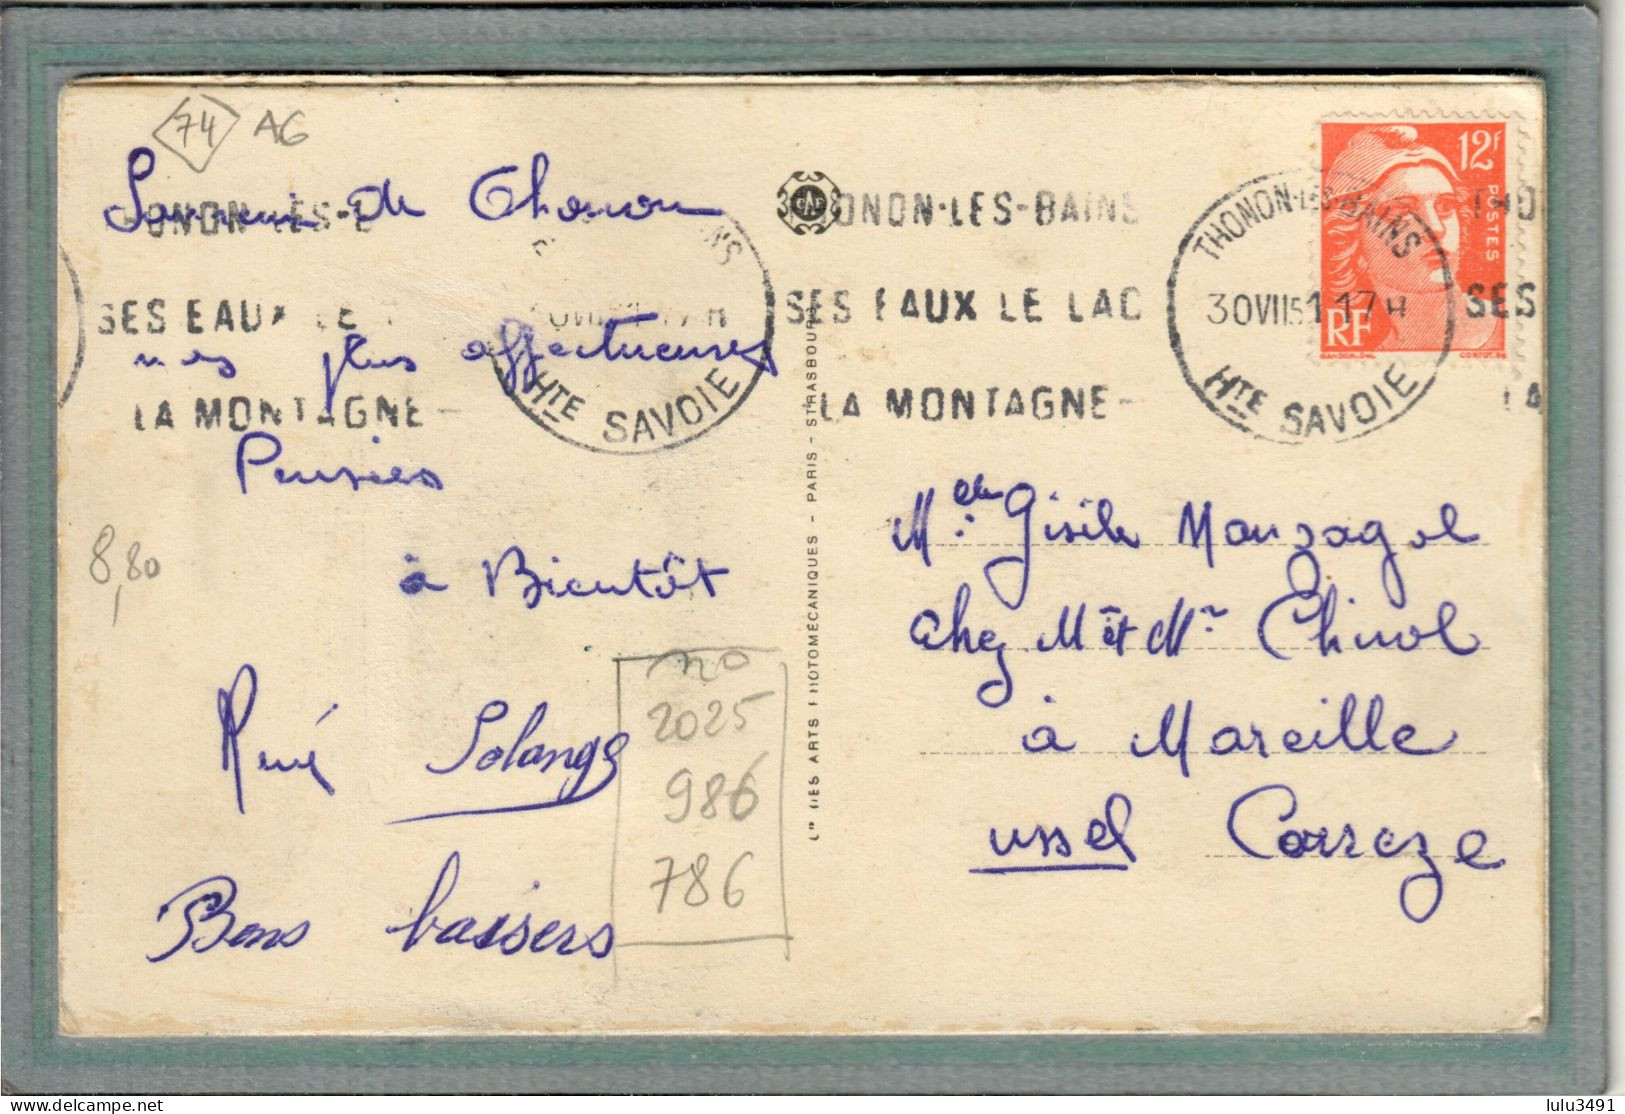 74 AG
Souvenir de Thonon
nos plus affectueuses
Pensées
à Bientôt
René Solange
Bons baisers
8,80
no
2025
986
786
ONON-LES-B
SES EAUX LE
LA MONTAGNE
Hte SAVOIE
CAP
ONON-LES-BAINS
SES EAUX LE LAC
LA MONTAGNE
THONON-LES-BAINS
30 VII 51 17H
Hte SAVOIE
THO
SES
LA
12f
POSTES
RF
GANDON-DEL
CORTOT.SC
Cie DES ARTS PHOTOMÉCANIQUES - PARIS - STRASBOURG
Melle Gisèle Monzagol
chez M et Mr Chirol
à Mareille
Ussel Corrèze
lulu3491